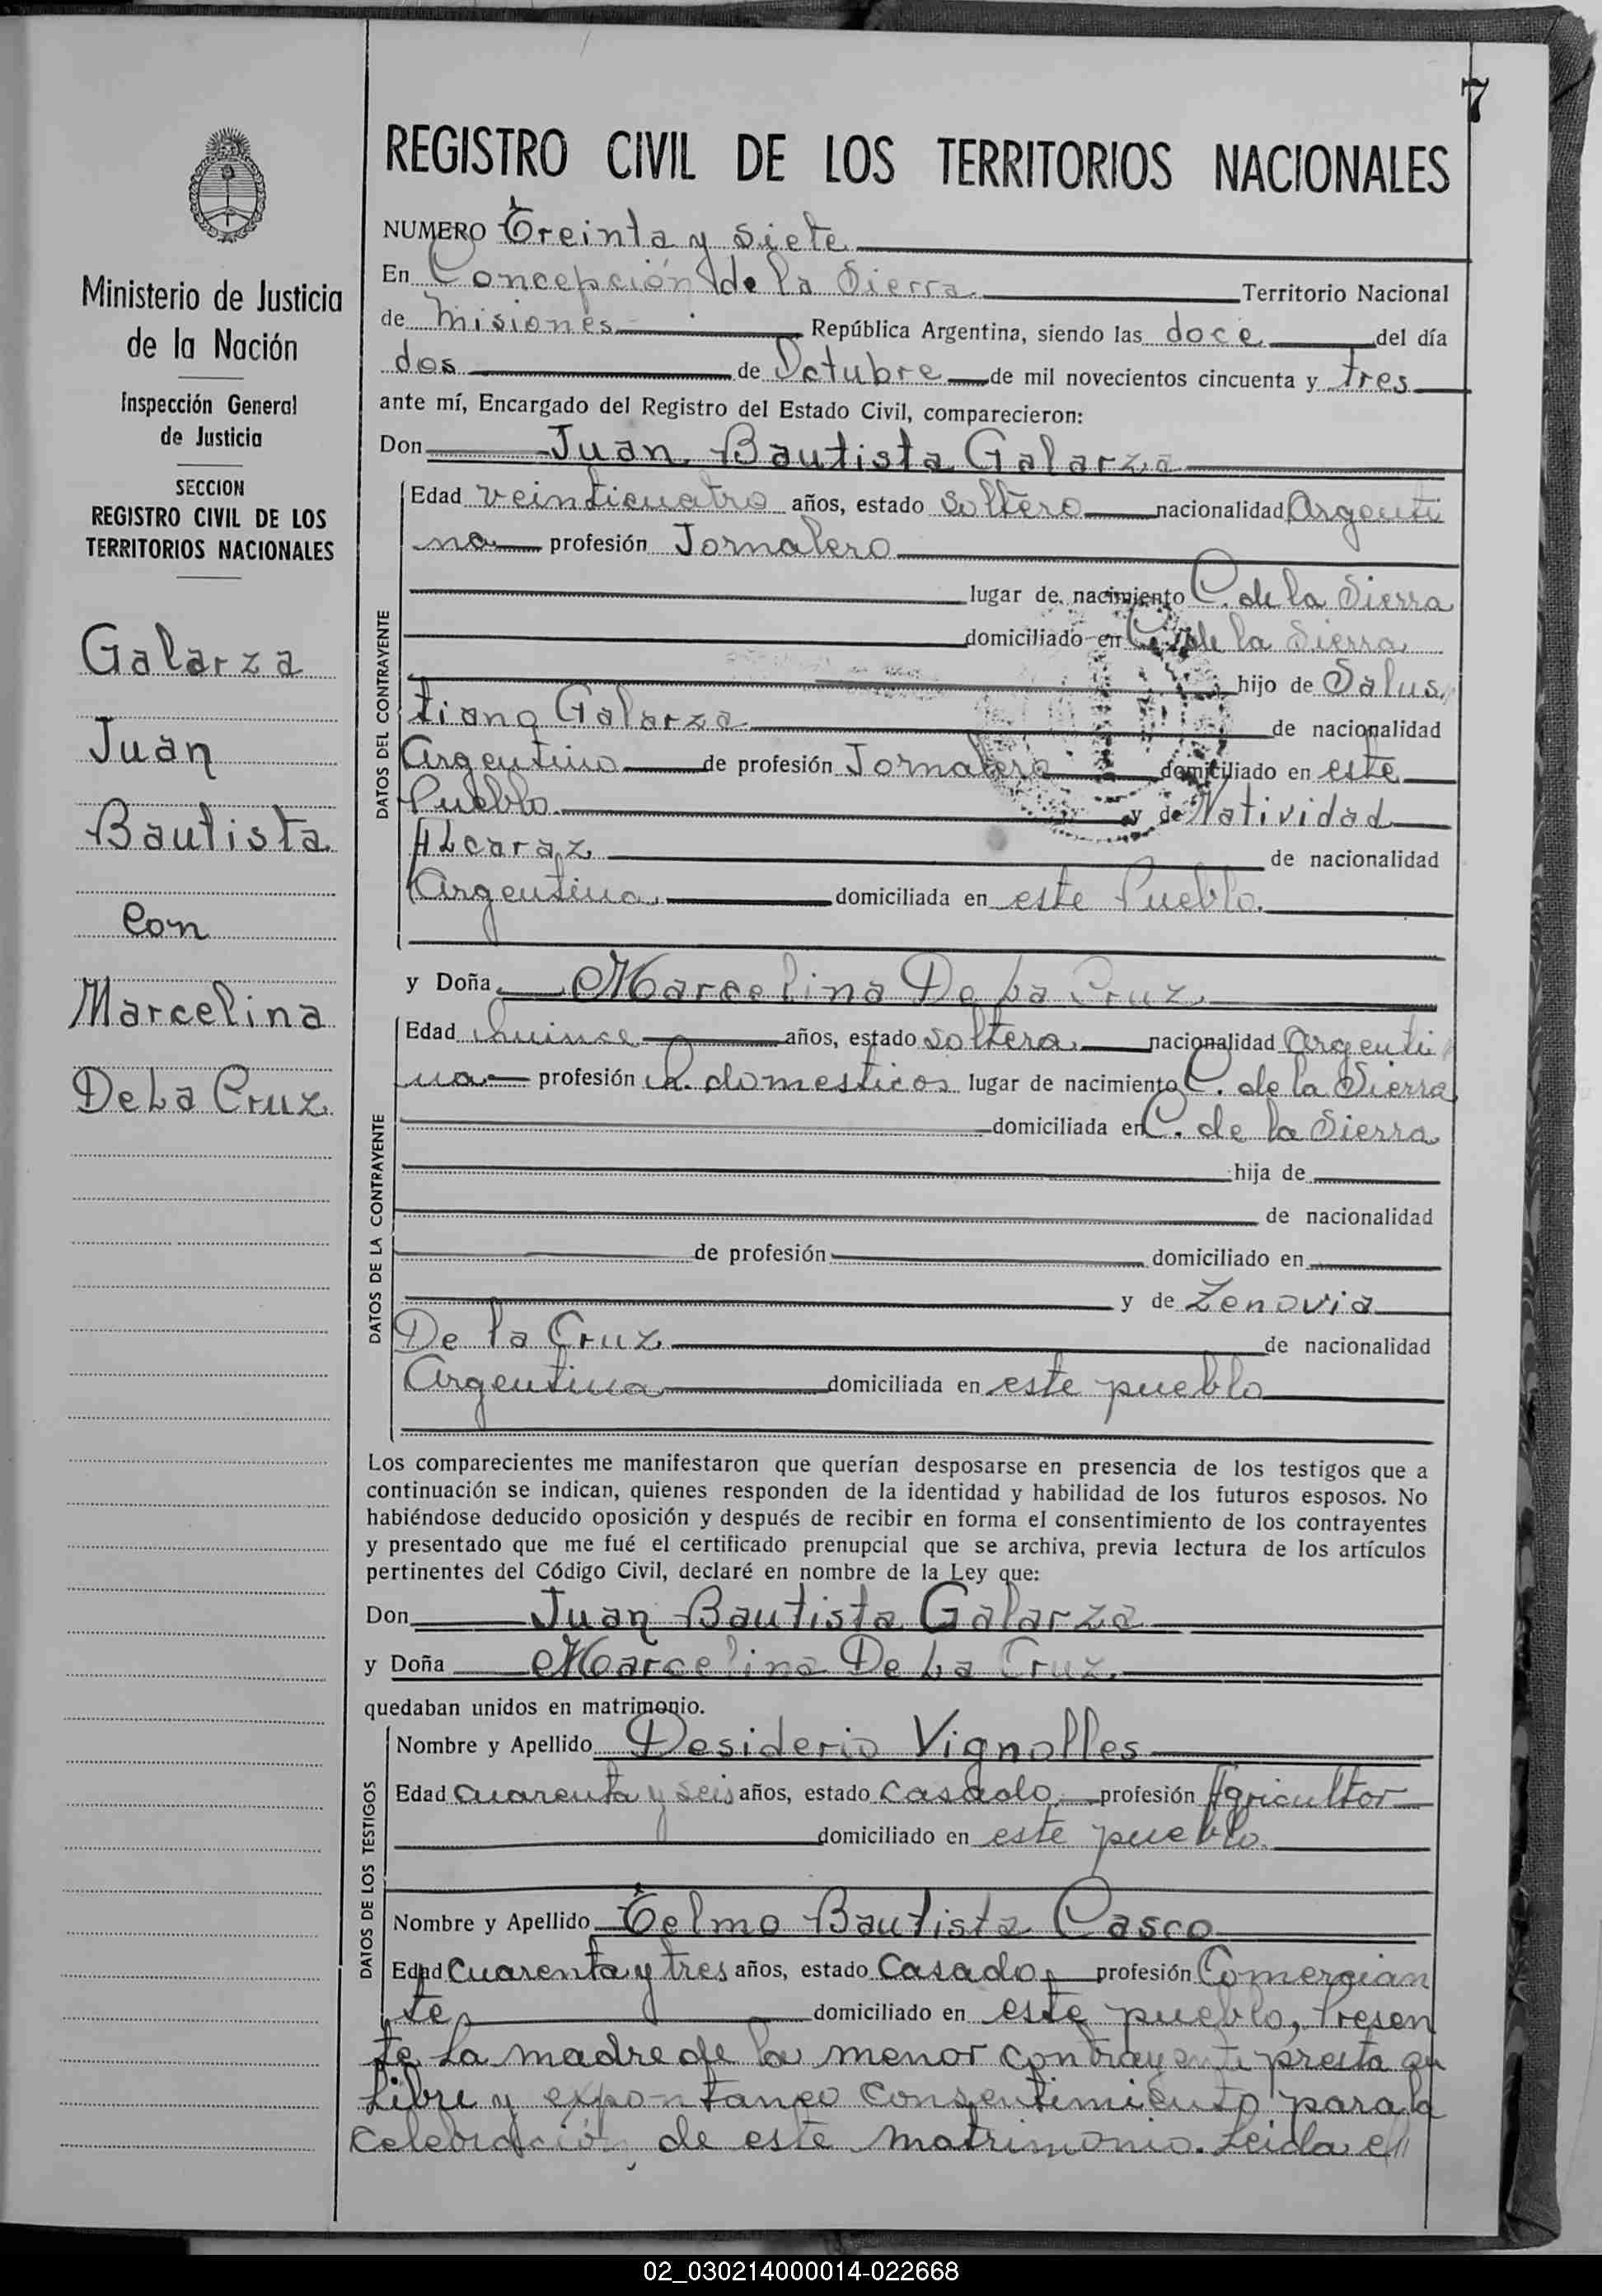 7
REGISTRO CIVIL DE LOS TERRITORIOS NACIONALES
Ministerio de Justicia
de la Nación
Inspección General
de Justicia
SECCION
REGISTRO CIVIL DE LOS
TERRITORIOS NACIONALES
Galarza
Juan
Bautista
Con
Marcelina
De La Cruz
NUMERO Treinta y siete
En Concepción de la Sierra Territorio Nacional
de Misiones República Argentina, siendo las doce del día
dos de Octubre de mil novecientos cincuenta y tres
ante mí, Encargado del Registro del Estado Civil, comparecieron:
Don Juan Bautista Galarza
DATOS DEL CONTRAYENTE
Edad veinticuatro años, estado Soltero nacionalidad Argenti
na profesión Jornalero
lugar de nacimiento C. de la Sierra
domiciliado en C. de la Sierra
hijo de Salus
tiano Galarza de nacionalidad
Argentino de profesión Jornalero domiciliado en este
Pueblo y de Natividad
Alcaraz de nacionalidad
Argentina domiciliada en este Pueblo.
y Doña Marcelina De La Cruz
DATOS DE LA CONTRAYENTE
Edad quince años, estado Soltera nacionalidad Argenti
na profesión Q. domesticos lugar de nacimiento C. de la Sierra
domiciliada en C. de la Sierra
hija de
de nacionalidad
de profesión domiciliado en
y de Zenovia
De la Cruz de nacionalidad
Argentina domiciliada en este pueblo
Los comparecientes me manifestaron que querían desposarse en presencia de los testigos que a
continuación se indican, quienes responden de la identidad y habilidad de los futuros esposos. No
habiéndose deducido oposición y después de recibir en forma el consentimiento de los contrayentes
y presentado que me fué el certificado prenupcial que se archiva, previa lectura de los artículos
pertinentes del Código Civil, declaré en nombre de la Ley que:
Don Juan Bautista Galarza
y Doña Marcelina De La Cruz
quedaban unidos en matrimonio.
DATOS DE LOS TESTIGOS
Nombre y Apellido Desiderio Vignolles
Edad cuarenta y seis años, estado Casado profesión Agricultor
domiciliado en este pueblo.
Nombre y Apellido Telmo Bautista Casco
Edad Cuarenta y tres años, estado Casado, profesión Comercian
te domiciliado en este pueblo, Presen
te La madre de la menor contrayente presta su
libre y expontaneo consentimiento para la
celebración de este matrimonio. Leida el
02_030214000014-022668